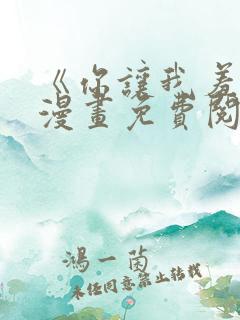 《你讓我羞
漫畫免費閱
鴻一茵
未经同意禁止转载